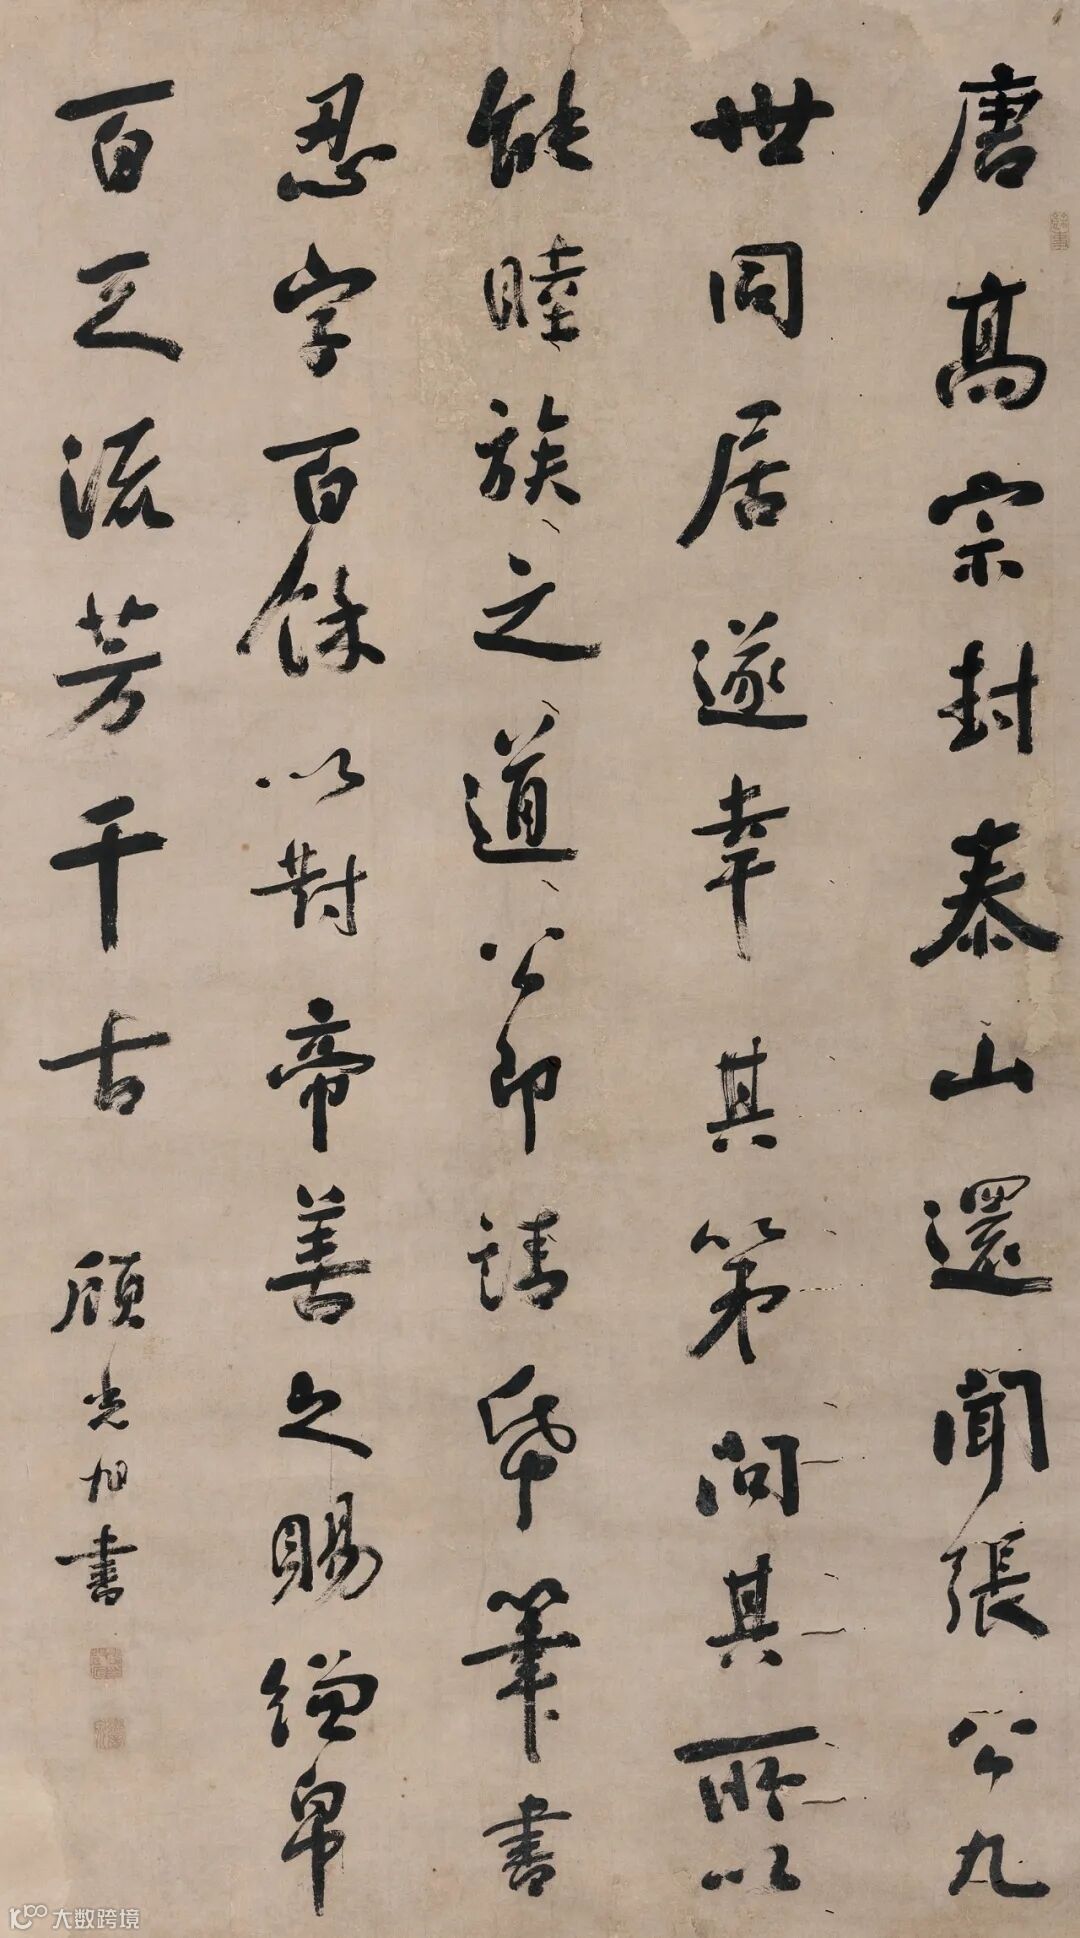 唐高宗封泰山還聞張公九
世同居遂幸其第問其所以
能睦族之道公即請紙筆書
忍字百餘以對帝善之賜繒帛
百疋流芳千古
顧光旭書
大数跨境